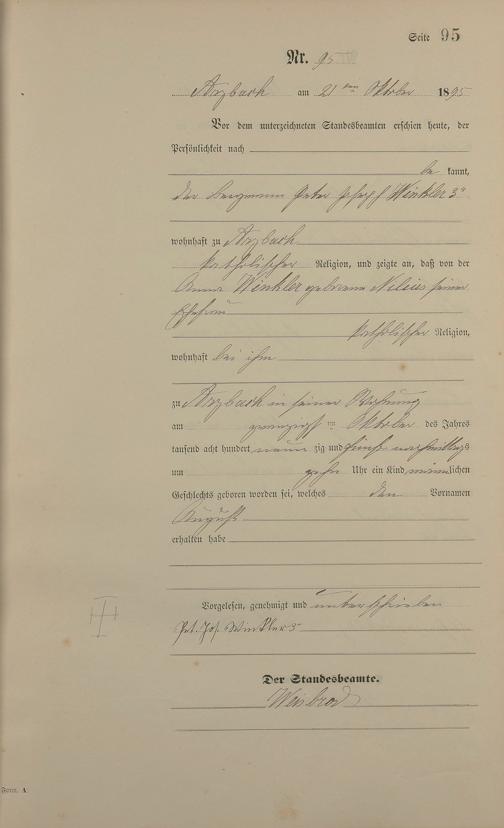 Seite 95
Nr. 95
Arzbach am 21ten Oktober 1895
Vor dem unterzeichneten Standesbeamten erschien heute, der
Persönlichkeit nach
be kannt,
der Bergmann Peter Joseph Winkler 3r
wohnhaft zu Arzbach
katholischer Religion, und zeigte an, daß von der
Anna Winkler geborene Nelius seiner
Ehefrau
katholischer Religion,
wohnhaft bei ihm
zu Arzbach in seiner Wohnung
am zwanzigsten Oktober des Jahres
tausend acht hundert neun zig und fünf nachmittags
um zehn Uhr ein Kind männlichen
Geschlechts geboren worden sei, welches den Vornamen
August
erhalten habe
Vorgelesen, genehmigt und unterschrieben
Pet. Jos. Winkler 3
Der Standesbeamte.
Weisbrod
Form. A